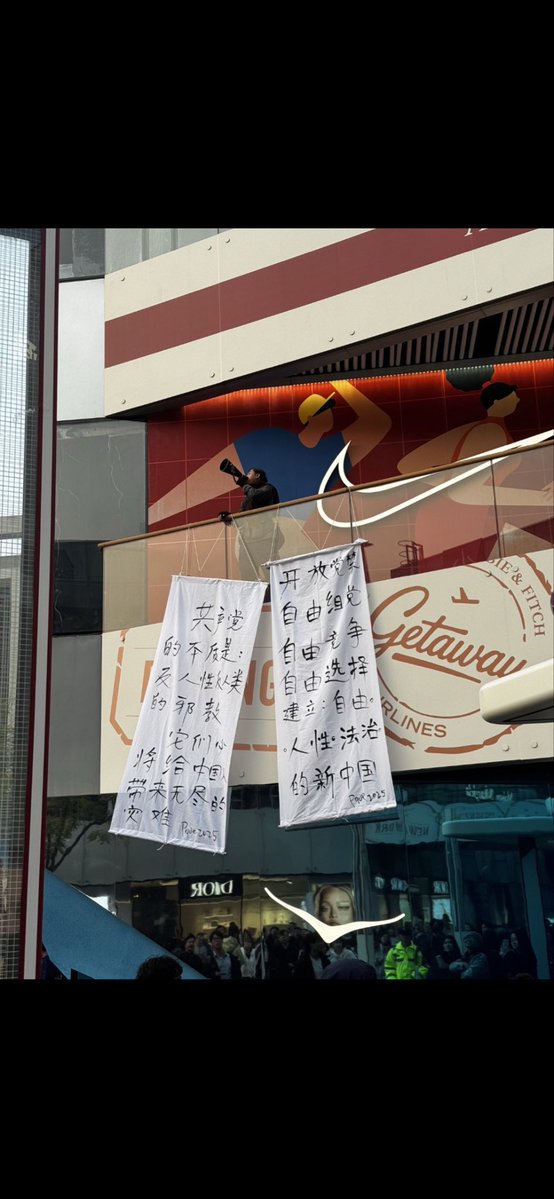 共产党
的本质是：
反人性反人类
的邪教
它们必
将给中国
带来无尽的
灾难
2025
开放党禁
自由组党
自由竞争
自由选择
建立：自由。
人性。法治。
的新中国
2025
& FITCH
Getaway
RLINES
DIOR